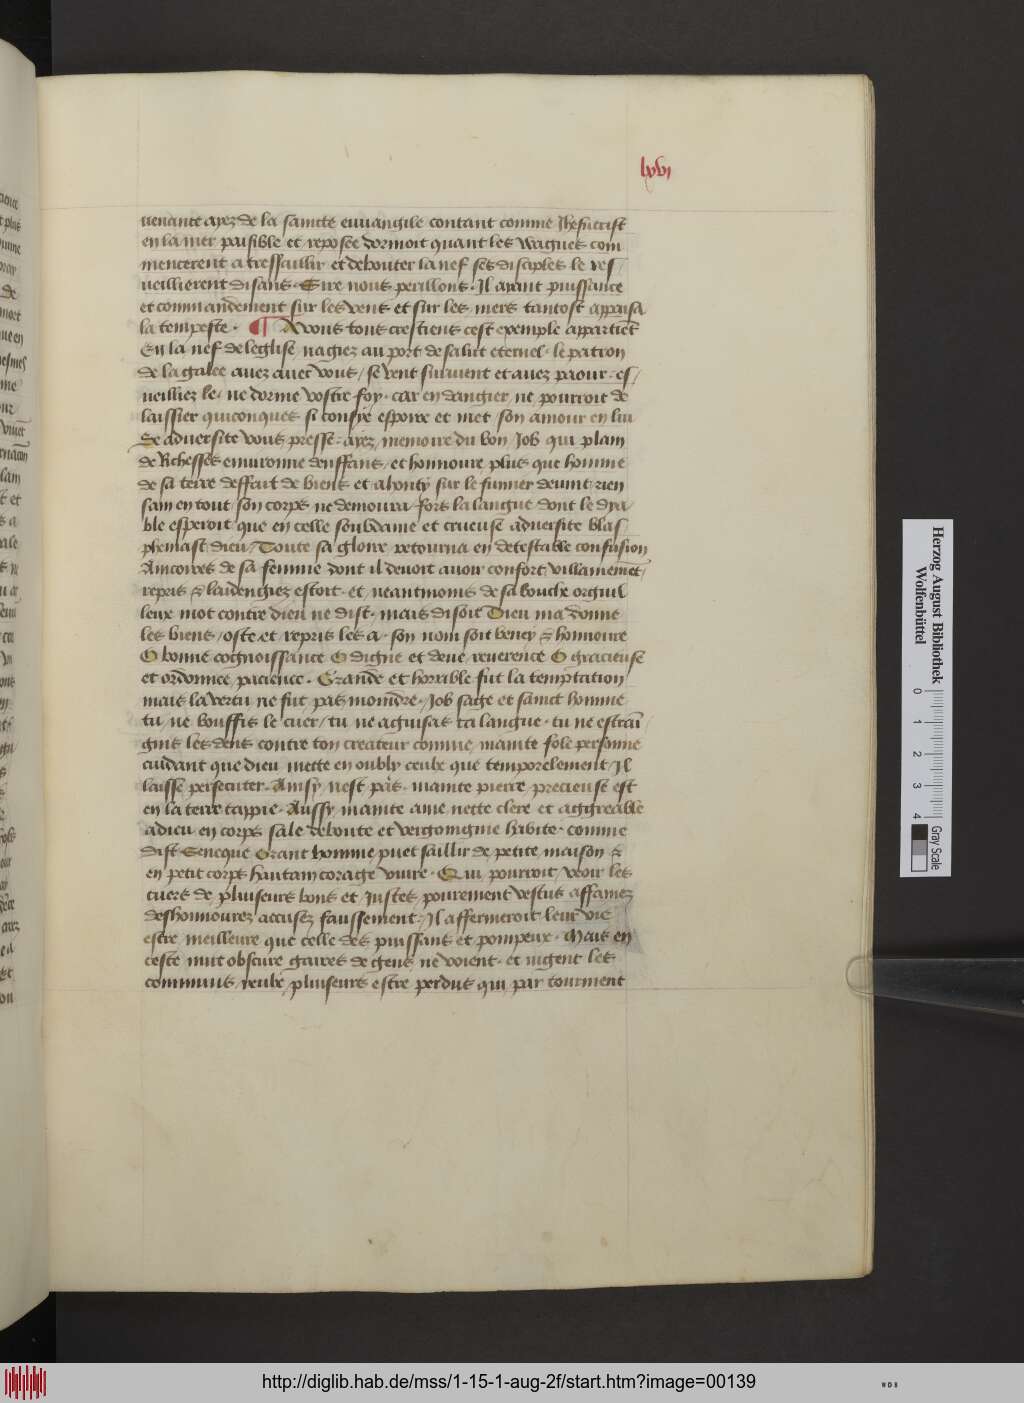 lxvi
uenance ayez de la saincte euuangile contant comme Jhesucrist
en la mer paisible et reposee dormoit quant les wagues com
mencerent a tressaillir et debouter la nef ses disciples le res /
ueillierent disans · Sire nous perillons · Il ayant puissance
et commandement sur les vens et sur les mers tantost appaisa
la tempeste · ¶ A vous tous crestiens cest exemple appartiet
En la nef de leglise / nagiez au port de salut eternel · le patron
de la galee auez auec vous / se vent suruient et auez paour · es /
ueilliez le · ne dorme vostre foy · car en dangier ne pourroit de
laissier quiconques si confye espoire et met son amour en lui
Se aduersite vous presse · ayez memoire du bon Job qui plain
de Richesses enuironne denffans / et honnoure plus que homme
de sa terre deffait de biens et a honty sur le fumier deuint rien
sain en tout son corps ne demoura fors la langue dont le dya
ble esperoit que en celle soubdaine et crueuse aduersite blas
phemast dieu / Toute sa gloire retourna en detestable confusion
Ancoires de sa femme dont il deuoit auoir confort villainemet /
repris & laidengiez estoit · et neantmoins de sa bouche orguil
leux mot contre dieu ne dist · mais disoit Dieu ma donne
les biens / oste et repris les a · son nom soit beney & honnoure
O bonne cognoissance O digne et deue reuerence O gracieuse
et ordonnee pacience · Grande et horrible fut la temptation
mais la vertu ne fut pas moindre · Job sage et sainct homme
tu ne bouffis le cuer / tu ne aguisas ta langue · tu ne estrai
gnis les dens contre ton createur comme mainte fole personne
cuidant que dieu mette en oubly ceulx que temporelement / Il
laisse persecuter · Ainsy nest pas · mainte pierre precieuse est
en la terre tappie · Aussy mainte ame nette clere et aggreable
a dieu en corps sale deboute et vergoingnie habite · comme
dist Seneque Grant homme puet saillir de petite maison &
en petit corps haultain corage viure · Qui pourroit veoir les
cuers de pluiseurs bons et Justes / pourement vestus affamez
deshonnourez accusez faussement / Il affermeroit leur vie
estre meilleure que celle des puissans et pompeux · Mais en
ceste nuit obscure gaires de gens ne voient · et iugent les
communs ceulx pluiseurs estre perdus qui par tourment
Herzog August Bibliothek
Wolfenbüttel
0 1 2 3 4
Gray Scale
http://diglib.hab.de/mss/1-15-1-aug-2f/start.htm?image=00139